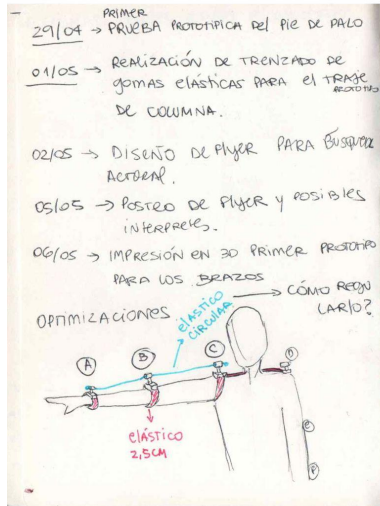 PRIMER
29/04 → PRUEBA PROTOTIPICA DEL PIE DE PALO
01/05 → REALIZACIÓN DE TRENZADO DE
gomas elásticas PARA el TRAJE
PROTOTIPO
DE COLUMNA.
02/05 → DISEÑO DE Flyer PARA BÚSQUEDA
ACTORAL.
05/05 → POSTEO DE FlyeR y POSIBLES
INTERPRETES.
06/05 → IMPRESIÓN EN 3D PRIMER PROTOTIPO
PARA LOS BRAZOS
OPTIMIZACIONES
elÁSTICO
CIRCULAR
→ CÓMO REGU
LARLO?
A
B
C
D
E
F
elÁSTICO
2,5CM